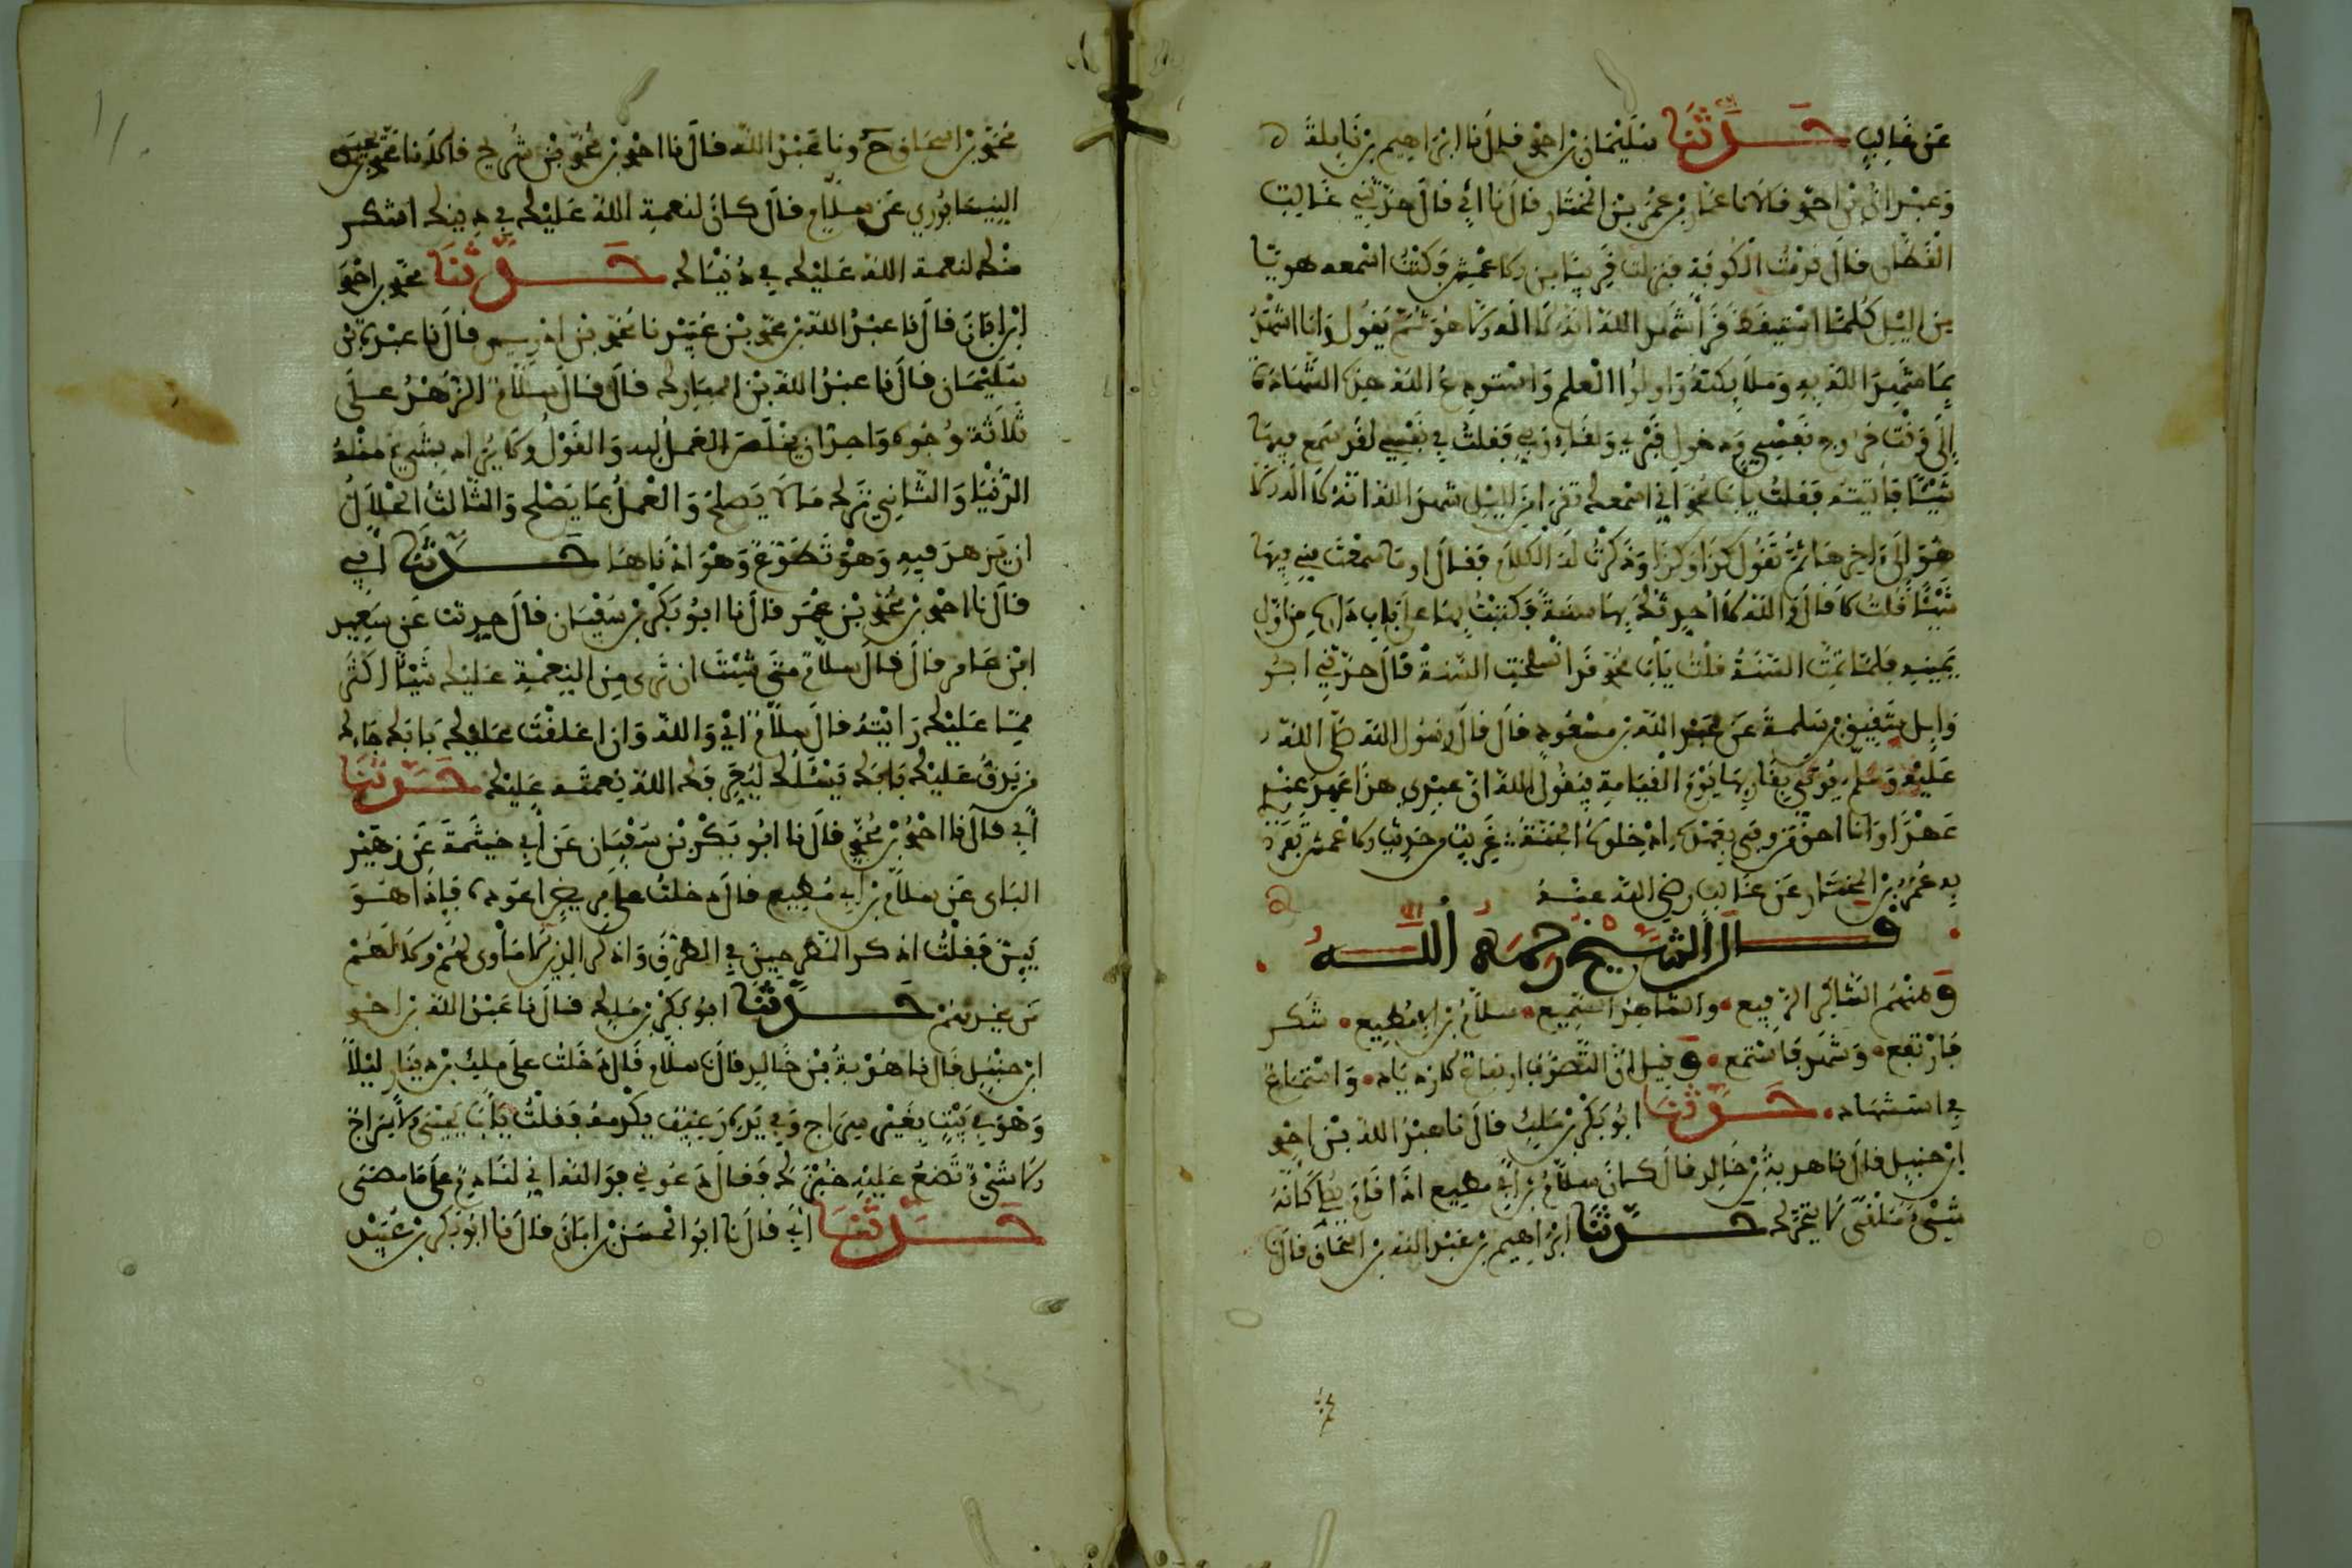 عن غالب حدثنا سليمان بن احمد قال نا ابراهيم بن نايلة ح
وعبدان بن احمد قالا نا عمار بن عمر بن المختار قال نا ابي قال حدثني غالب
القطان قال قدمت الكوفة فنزلت قريبا من الاعمش وكنت اسمعه هويا
من اليل كلما استيقظ قرأ شهد الله انه لا اله الا هو ثم يقول وانا اشهد
بما شهد الله به وملائكته واولوا العلم واستودع الله هذه الشهادة
الى وقت خروج نفسي ودخول قبري ولقاء ربي فقلت في نفسي لقد سمع فيها
شيئا فاتيته فقلت يابا محمد اني اسمعك تقرأ من الليل شهد الله انه لا اله الا
هو الى ءاخرها ثم تقول كذا وكذا وذكرت له الكلام فقال اوما سمعت مني فيها
شيئا قلت لا قال والله لا احدثك بها سنة فكتبت بها على باب داره من اول
يميني فلما تمت السنة قلت يأبا محمد قد انسلخت السنة قال حدثني ابو
وايل شقيق بن سلمة عن عبد الله بن مسعود قال قال رسول الله صلى الله
عليه وسلم يوتى بقاريها يوم القيامة فيقول الله ان عبدي هذا عهد عندي
عهدا وانا احق من وفى بعهده ادخلوه الجنة غريب من حديث الاعمش تفرد
به عمر بن المختار عن غالب رضي الله عنه
قال الشيخ رحمه الله
ومنهم الشاكر الرفيع والشاهد السميع سلام بن ابي مطيع شكر
فارتفع وشهد فاستمع وقيل ان التصوف ارتفاع لازدياد واستماع
في استشهاد حدثنا ابو بكر بن ملك قال نا عبد الله بن احمد
ابن حنبل قال نا هدبة بن خالد قال كان سلام بن ابي مطيع اذا قام يصلي كأنه
شيء ملقى لا يتحرك حدثنا ابراهيم بن عبد الله بن اسحاق قال نا
محمد بن اسحاق ح ونا عبد الله قال نا احمد بن محمد بن شريح قالا نا محمد بن يحيى
النيسابوري عن سلام قال كان لنعمة الله عليك في دينك اشكر
منك لنعمة الله عليك في دنياك حدثنا محمد بن احمد
ابن ابان قال نا عبد الله بن محمد بن عبيد نا محمد بن ادريس قال نا عبدة بن
سليمان قال نا عبد الله بن المبارك قال قال سلام الزهد على
ثلاثة وجوه واحد ان يخلص العمل لله والقول ولا يراد بشيء منه
الدنيا والثاني ترك ما لا يصلح والعمل بما يصلح والثالث الحلال
ان يزهد فيه وهو تطوع وهو ادناها حدثنا ابي
قال نا احمد بن محمد بن عمر قال نا ابو بكر بن سفيان قال حدثت عن سعيد
ابن عامر قال قال سلام متى شئت ان ترى من النعمة عليك شيئا اكثر
مما عليك رايته قال سلام اي والله وان اغلقت عليك بابك جاءك
من يدق عليك بابك يسئلك ليعرفك الله نعمته عليك حدثنا
أبي قال نا احمد بن محمد قال نا ابو بكر بن سفيان عن أبي خيثمة عن زهير
البابي عن سلام بن ابي مطيع قال دخلت على مريض اعوده فإذا هو
يين فقلت اذكر المطرحين في الطرق واذكر الذين لا ماوى لهم ولا لهم
من يخدمهم حدثنا ابو بكر بن ملك قال نا عبد الله بن احمد
ابن حنبل قال نا هدبة بن خالد قال نا سلام قال دخلت على ملك بن دينار ليلا
وهو في بيت بغير سراج وفي يده رغيف يكدمه فقلت يأبا يحيى الا سراج
الا شيء تضع عليه خبزك فقال دعوني فوالله اني لنادم على ما مضى
حدثنا ابي قال نا ابو الحسن بن ابان قال نا ابو بكر بن عبيد